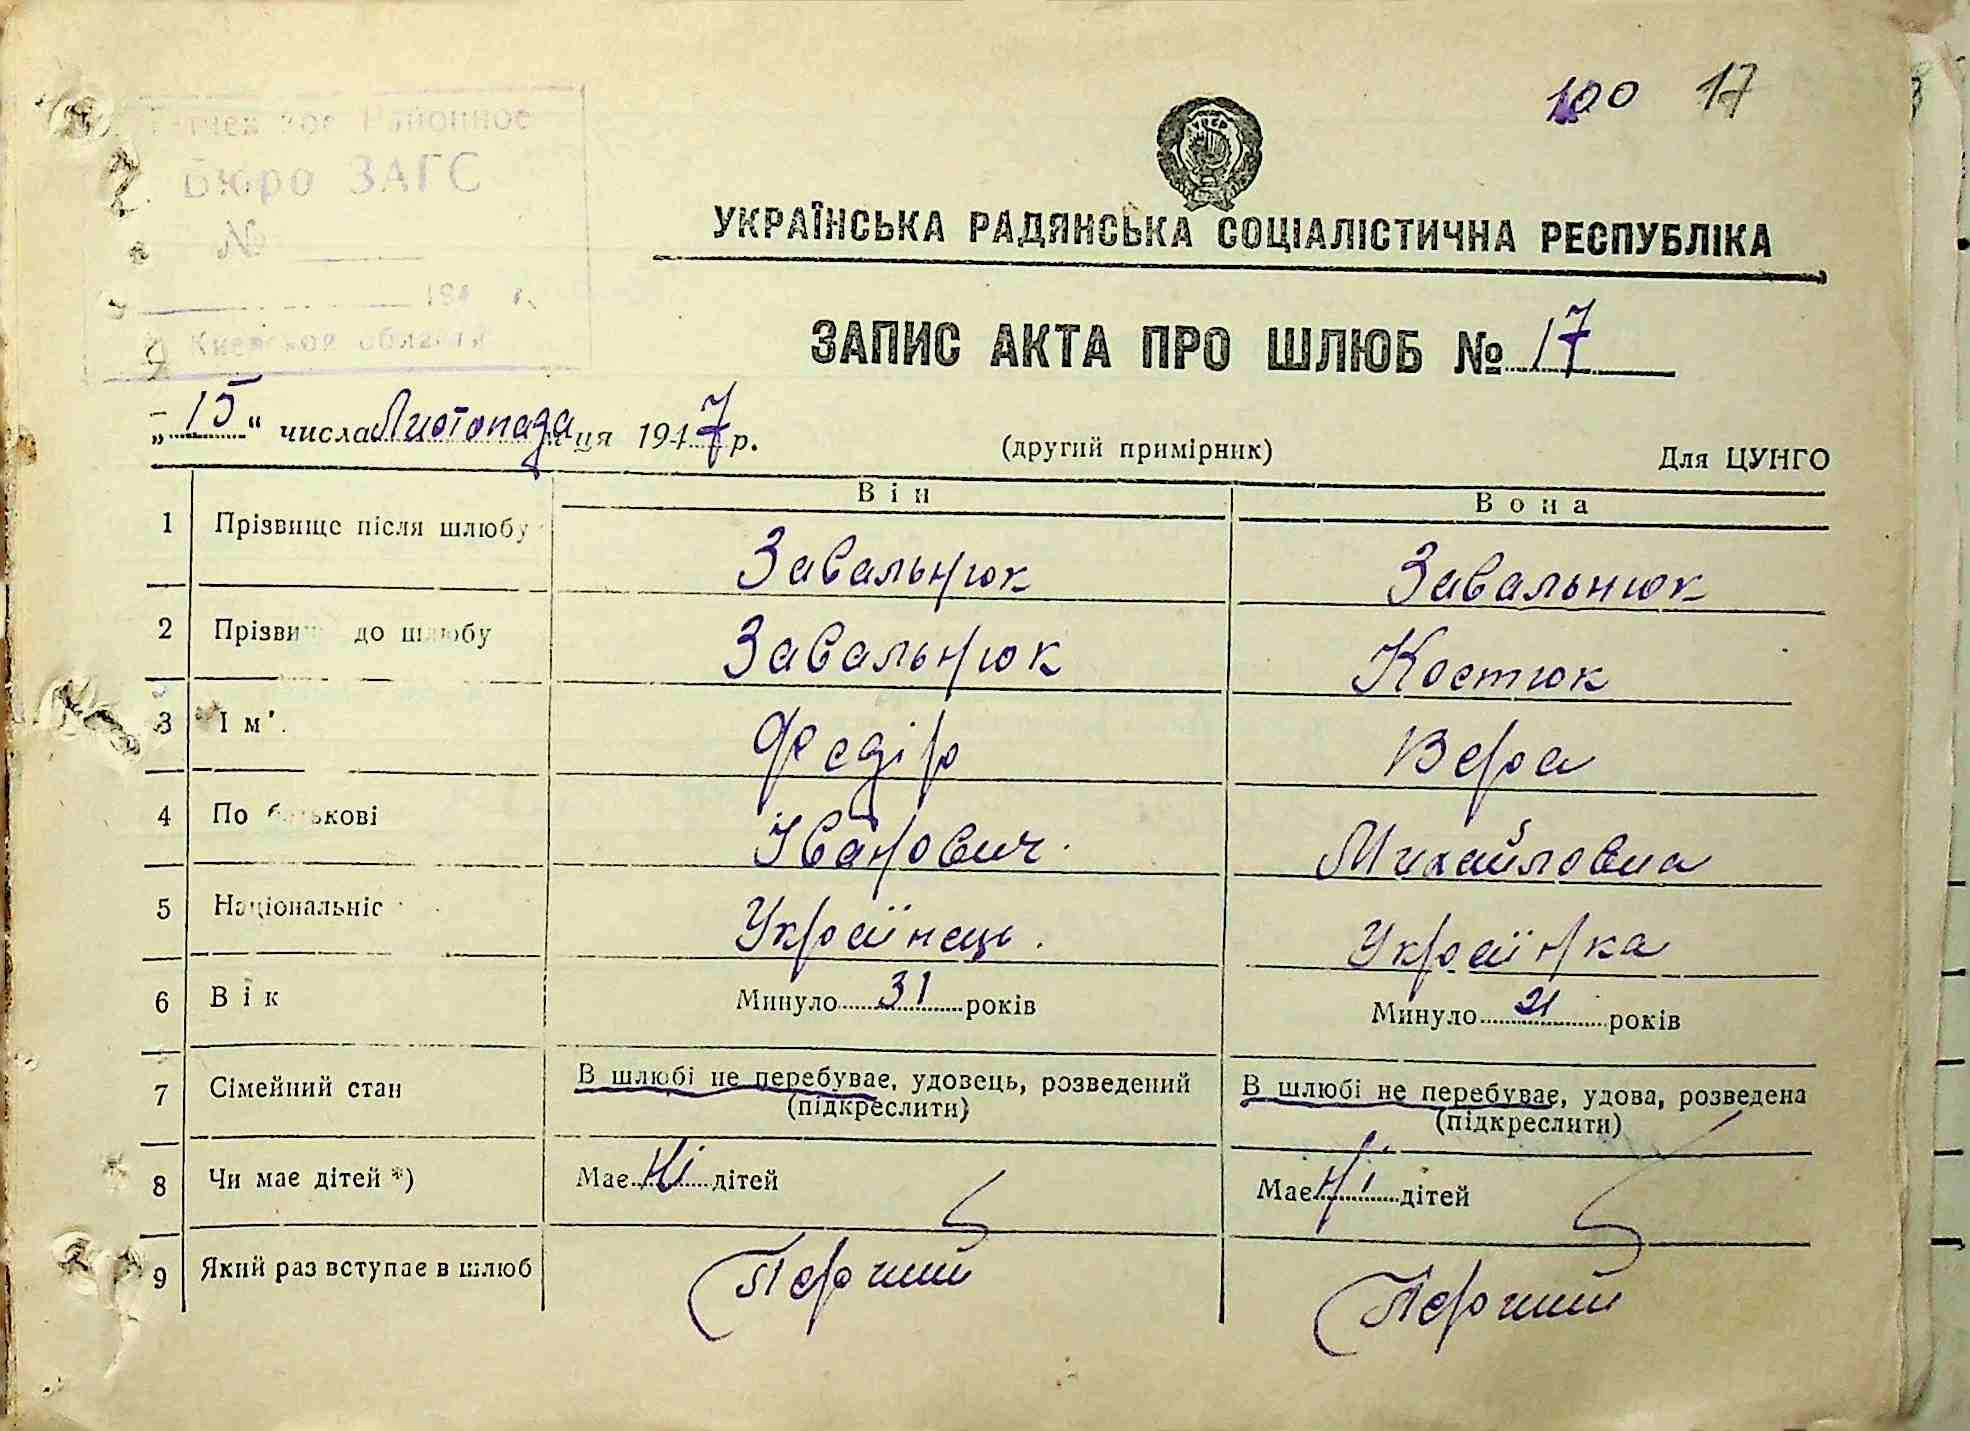 100 17
Районное
Бюро ЗАГС
№
194 г.
Киевской области
УКРАЇНСЬКА РАДЯНСЬКА СОЦІАЛІСТИЧНА РЕСПУБЛІКА
ЗАПИС АКТА ПРО ШЛЮБ № 17
„15“ числа Листопада м-ця 1947 р.
(другий примірник) Для ЦУНГО
Він Вона
1 Прізвище після шлюбу Завальнюк Завальнюк
2 Прізвищ до шлюбу Завальнюк Костюк
3 Ім'. Федір Вера
4 По батькові Іванович. Михайловна
5 Національніс Українець. Українка
6 Вік Минуло 31 років Минуло 21 років
7 Сімейний стан В шлюбі не перебуває, удовець, розведений (підкреслити) В шлюбі не перебуває, удова, розведена (підкреслити)
8 Чи має дітей *) Має Ні дітей Має Ні дітей
9 Який раз вступає в шлюб Перший Перший